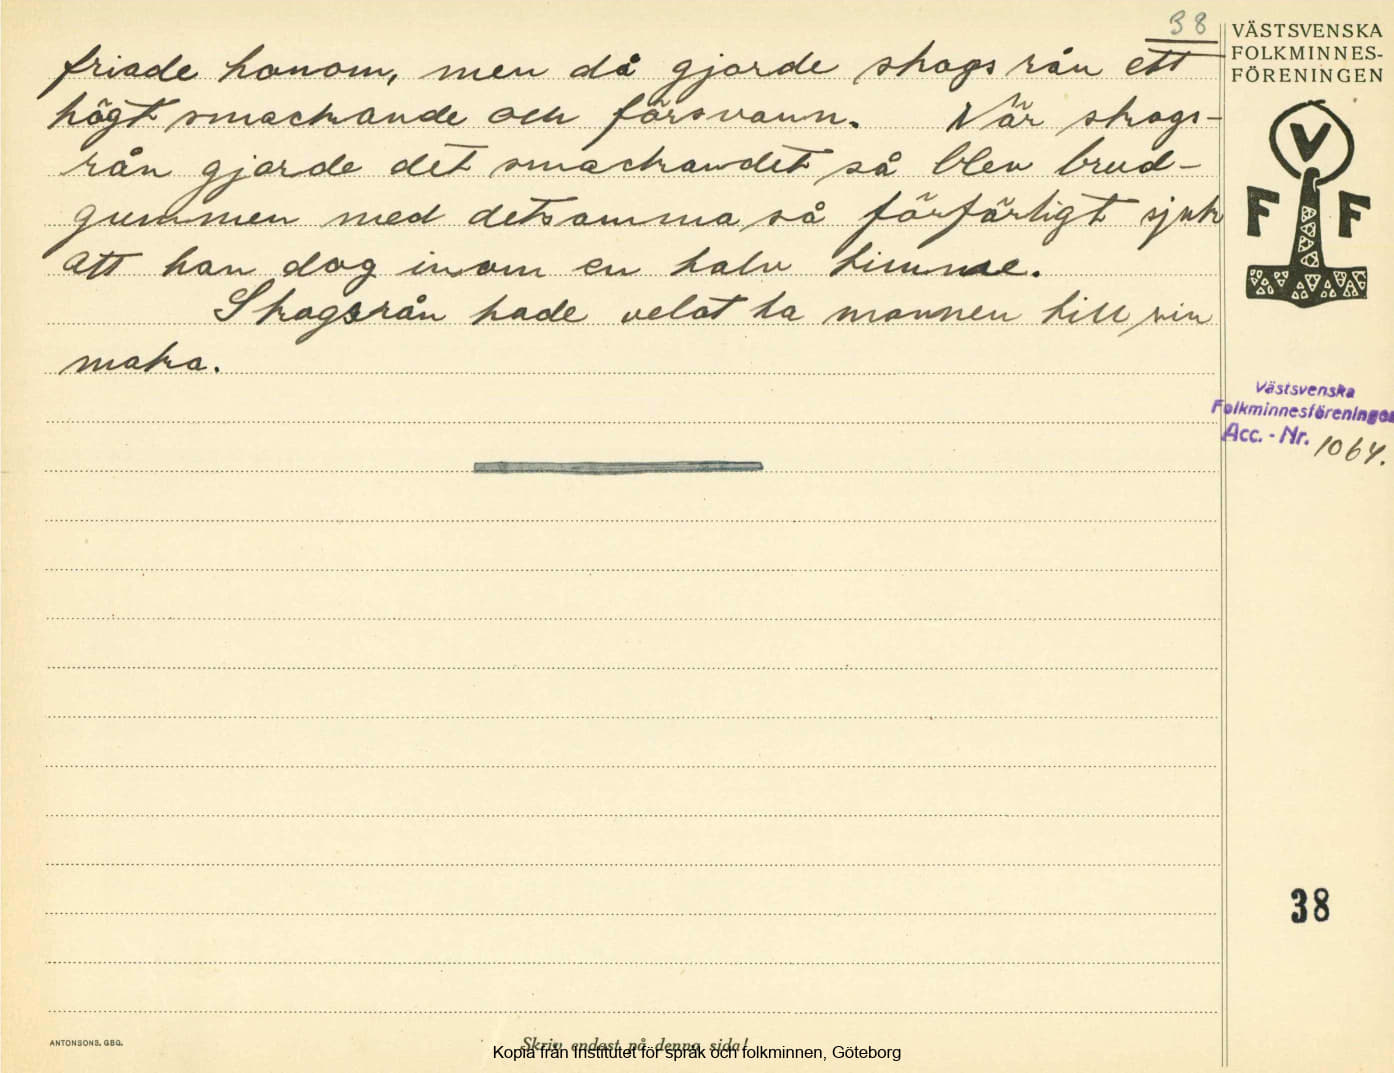 38
friade honom, men då gjorde skogsrån ett
högt smackande och försvann. När skogs-
rån gjorde det smackandet så blev brud-
gummen med detsamma så förfärligt sjuk
att han dog inom en halv timme.
Skogsrån hade velat ha mannen till sin
maka.
VÄSTSVENSKA
FOLKMINNES-
FÖRENINGEN
V
F F
Västsvenska
Folkminnesföreningen
Acc. - Nr. 1064.
38
ANTONSONS, GBG.
Skriv endast på denna sida!
Kopia från Institutet för språk och folkminnen, Göteborg